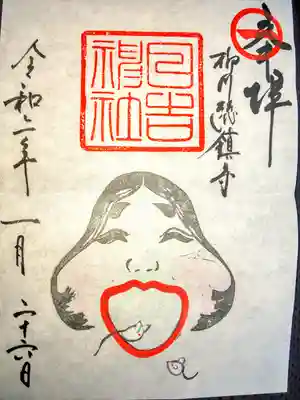 奉拝
柳川総鎮守
日吉神社
令和二年一月二十六日